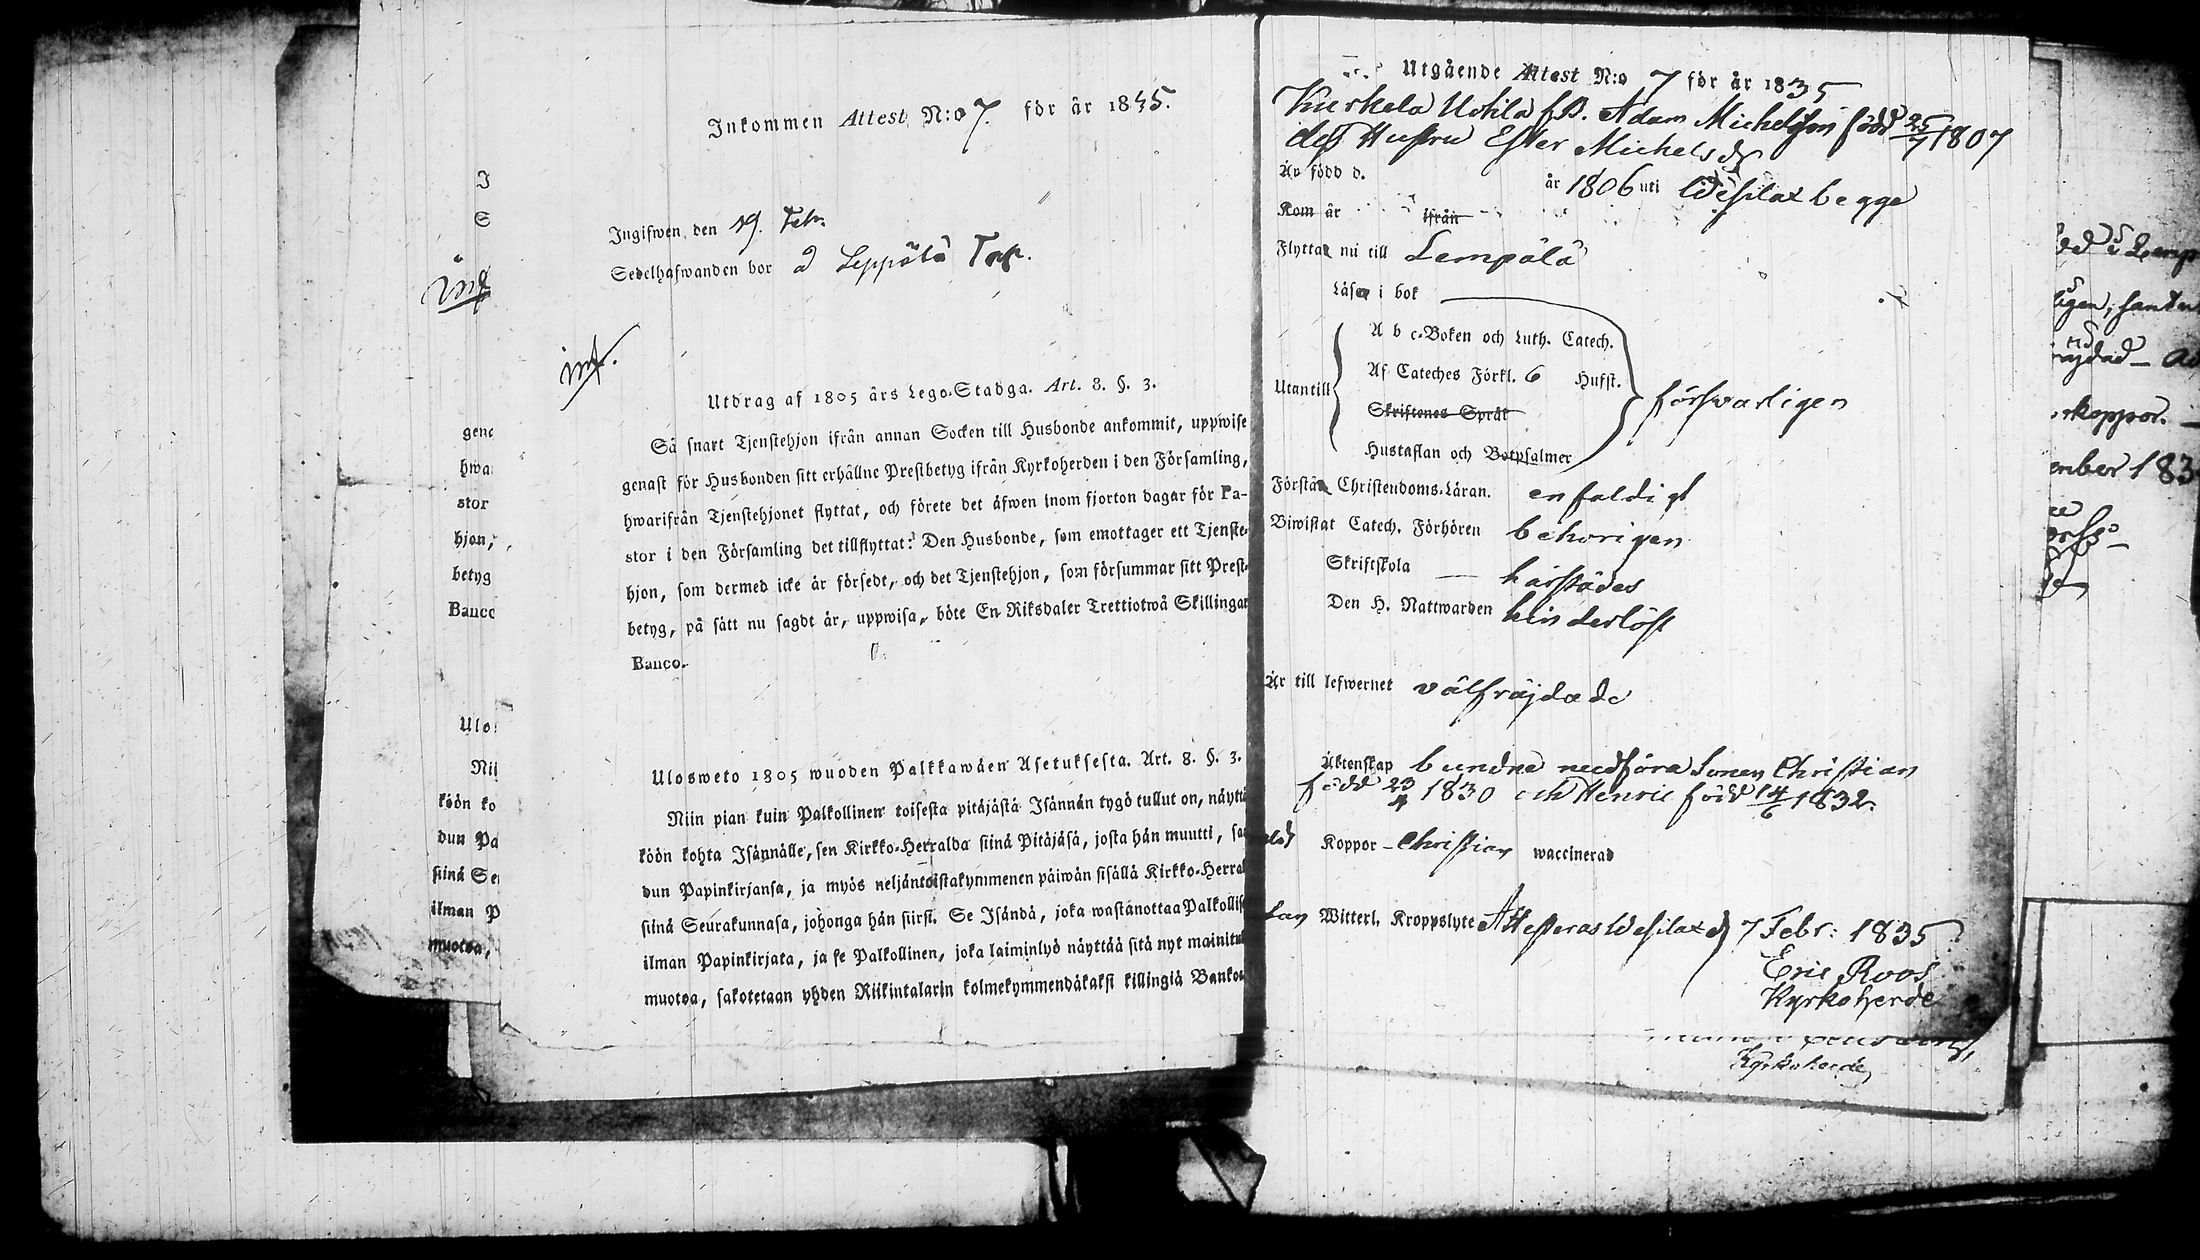 Inkommen Attest N:o 7. för år 1835.
Ingifwen den 19. Febr.
Sedelhafwanden bor å Leppälä Torp.
inf.
Utdrag af 1805 års Lego-Stadga. Art. 8. §. 3.
Så snart Tjenstehjon ifrån annan Socken till Husbonde ankommit, uppwise
genast för Husbonden sitt erhållne Prestbetyg ifrån Kyrkoherden i den Församling,
hwarifrån Tjenstehjonet flyttat, och förete det äfwen inom fjorton dagar för Pa-
stor i den Församling det tillflyttat: Den Husbonde, som emottager ett Tjenste-
hjon, som dermed icke är försedt, och det Tjenstehjon, som försummar sitt Prest-
betyg, på sätt nu sagdt är, uppwisa, böte En Riksdaler Trettiotwå Skillingar
Banco.
Ulosweto 1805 wuoden Palkkawäen Asetuksesta. Art. 8. §. 3.
Niin pian kuin Palkollinen toisesta pitäjästä Isännän tygö tullut on, näyttä
köön kohta Isännälle, sen Kirkko-Herralda siinä Pitäjäsä, josta hän muutti, sa
dun Papinkirjansa, ja myös neljäntoistakymmenen päiwän sisällä Kirkko-Herral
siinä Seurakunnasa, johonga hän siirsi. Se Isändä, joka wastanottaa Palkollis
ilman Papinkirjata, ja se Palkollinen, joka laiminlyö näyttää sitä nyt mainitul
muotoa, sakotetaan yhden Riikintalarin kolmekymmendäkaksi killingiä Bankos
Utgående Attest N:o 7 för år 1835
Kurkela Uotila f.B. Adam Michelsson född 25/7 1807
dess Hustru Ester Michelsdr
Är född d. år 1806 uti Wesilax begge
Kom år ifrån
Flyttar nu till Lempälä
Läser i bok
A b c-Boken och Luth. Catech.
Utantill Af Cateches Förkl. 6 Hufst. försvarligen
Skriftenes Språk
Hustaflan och Botpsalmer
Förstår Christendoms-Läran. enfaldigt
Biwistat Catech. Förhören behörigen
Skriftskola härstädes
Den H. Nattwarden hinderlöst
Är till lefwernet välfräjdade
Äktenskap bundne medföra Sonen Christian
född 23/4 1830 och Henric född 14/6 1832.
Koppor - Christian waccinerad
Witterl. Kroppslyte Attesteras Wesilax d 7 Febr: 1835
Eric Roos
Kyrkoherde
Kyrkoherde